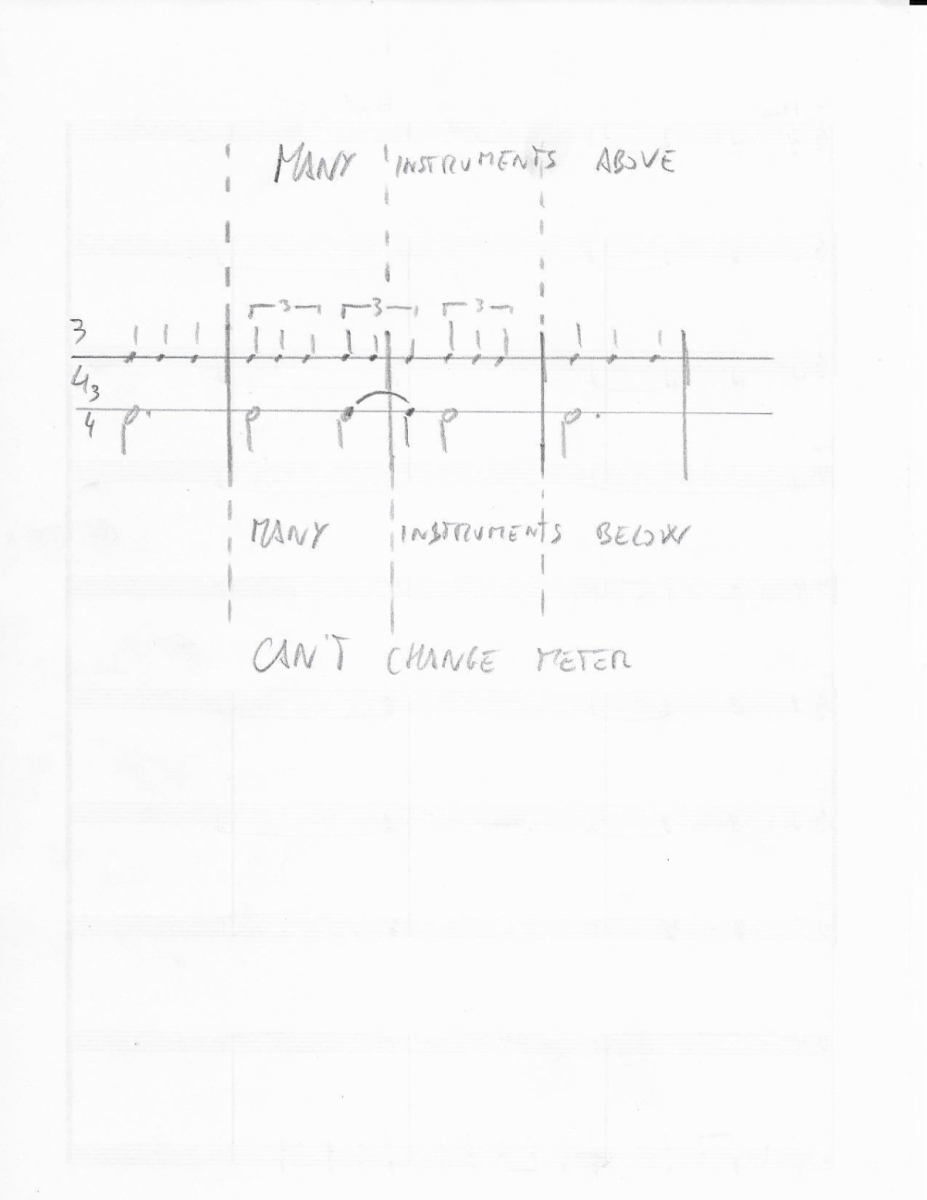 MANY INSTRUMENTS ABOVE
3 3 3
3
4
3
4
MANY INSTRUMENTS BELOW
CAN'T CHANGE METER